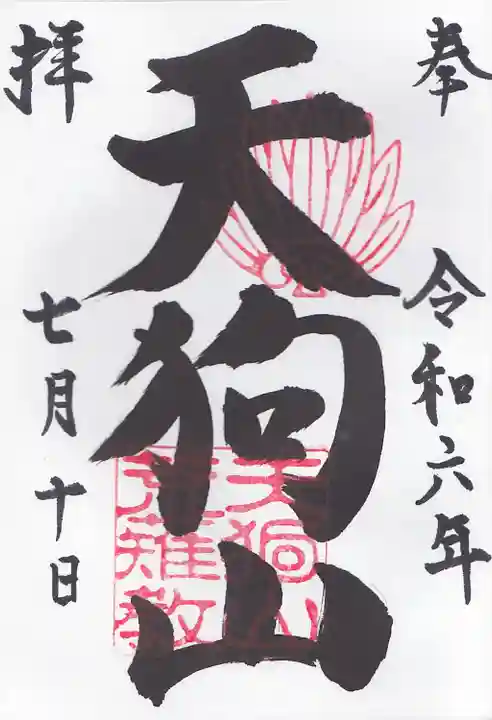 奉拝
天狗山
令和六年
七月十日
天狗山